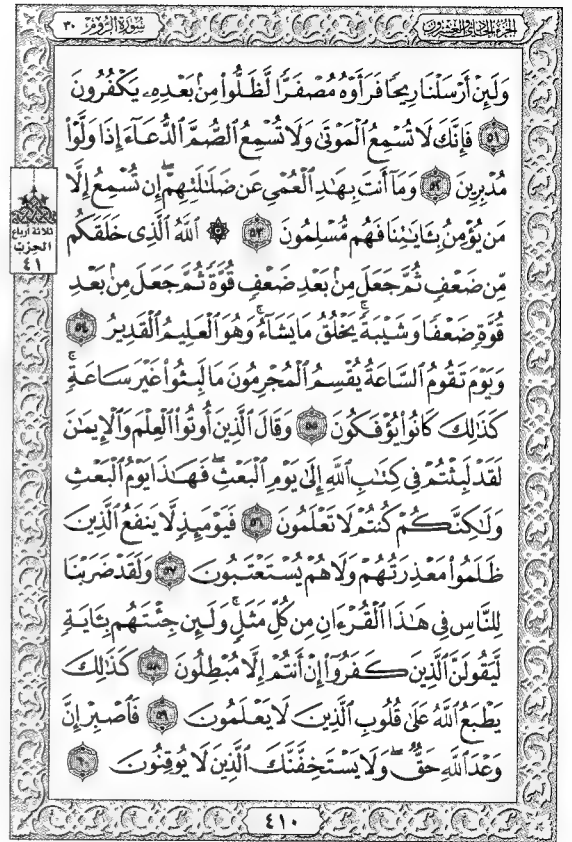 الجزء الحادي والعشرون
سورة الروم ٣٠
وَلَئِنْ أَرْسَلْنَا رِيحًا فَرَأَوْهُ مُصْفَرًّا لَّظَلُّوا۟ مِنۢ بَعْدِهِۦ يَكْفُرُونَ
٥١ فَإِنَّكَ لَا تُسْمِعُ ٱلْمَوْتَىٰ وَلَا تُسْمِعُ ٱلصُّمَّ ٱلدُّعَآءَ إِذَا وَلَّوْا۟
مُدْبِرِينَ ٥٢ وَمَآ أَنتَ بِهَٰدِ ٱلْعُمْىِ عَن ضَلَٰلَتِهِمْ ۖ إِن تُسْمِعُ إِلَّا
مَن يُؤْمِنُ بِـَٔايَٰتِنَا فَهُم مُّسْلِمُونَ ٥٣ ۞ ٱللَّهُ ٱلَّذِى خَلَقَكُم
مِّن ضَعْفٍ ثُمَّ جَعَلَ مِنۢ بَعْدِ ضَعْفٍ قُوَّةً ثُمَّ جَعَلَ مِنۢ بَعْدِ
قُوَّةٍ ضَعْفًا وَشَيْبَةً ۚ يَخْلُقُ مَا يَشَآءُ ۖ وَهُوَ ٱلْعَلِيمُ ٱلْقَدِيرُ ٥٤
وَيَوْمَ تَقُومُ ٱلسَّاعَةُ يُقْسِمُ ٱلْمُجْرِمُونَ مَا لَبِثُوا۟ غَيْرَ سَاعَةٍ ۚ
كَذَٰلِكَ كَانُوا۟ يُؤْفَكُونَ ٥٥ وَقَالَ ٱلَّذِينَ أُوتُوا۟ ٱلْعِلْمَ وَٱلْإِيمَٰنَ
لَقَدْ لَبِثْتُمْ فِى كِتَٰبِ ٱللَّهِ إِلَىٰ يَوْمِ ٱلْبَعْثِ ۖ فَهَٰذَا يَوْمُ ٱلْبَعْثِ
وَلَٰكِنَّكُمْ كُنتُمْ لَا تَعْلَمُونَ ٥٦ فَيَوْمَئِذٍ لَّا يَنفَعُ ٱلَّذِينَ
ظَلَمُوا۟ مَعْذِرَتُهُمْ وَلَا هُمْ يُسْتَعْتَبُونَ ٥٧ وَلَقَدْ ضَرَبْنَا
لِلنَّاسِ فِى هَٰذَا ٱلْقُرْءَانِ مِن كُلِّ مَثَلٍ ۚ وَلَئِن جِئْتَهُم بِـَٔايَةٍ
لَّيَقُولَنَّ ٱلَّذِينَ كَفَرُوٓا۟ إِنْ أَنتُمْ إِلَّا مُبْطِلُونَ ٥٨ كَذَٰلِكَ
يَطْبَعُ ٱللَّهُ عَلَىٰ قُلُوبِ ٱلَّذِينَ لَا يَعْلَمُونَ ٥٩ فَٱصْبِرْ إِنَّ
وَعْدَ ٱللَّهِ حَقٌّ ۖ وَلَا يَسْتَخِفَّنَّكَ ٱلَّذِينَ لَا يُوقِنُونَ ٦٠
ثلاثة أرباع
الحزب
٤١
٤١٠